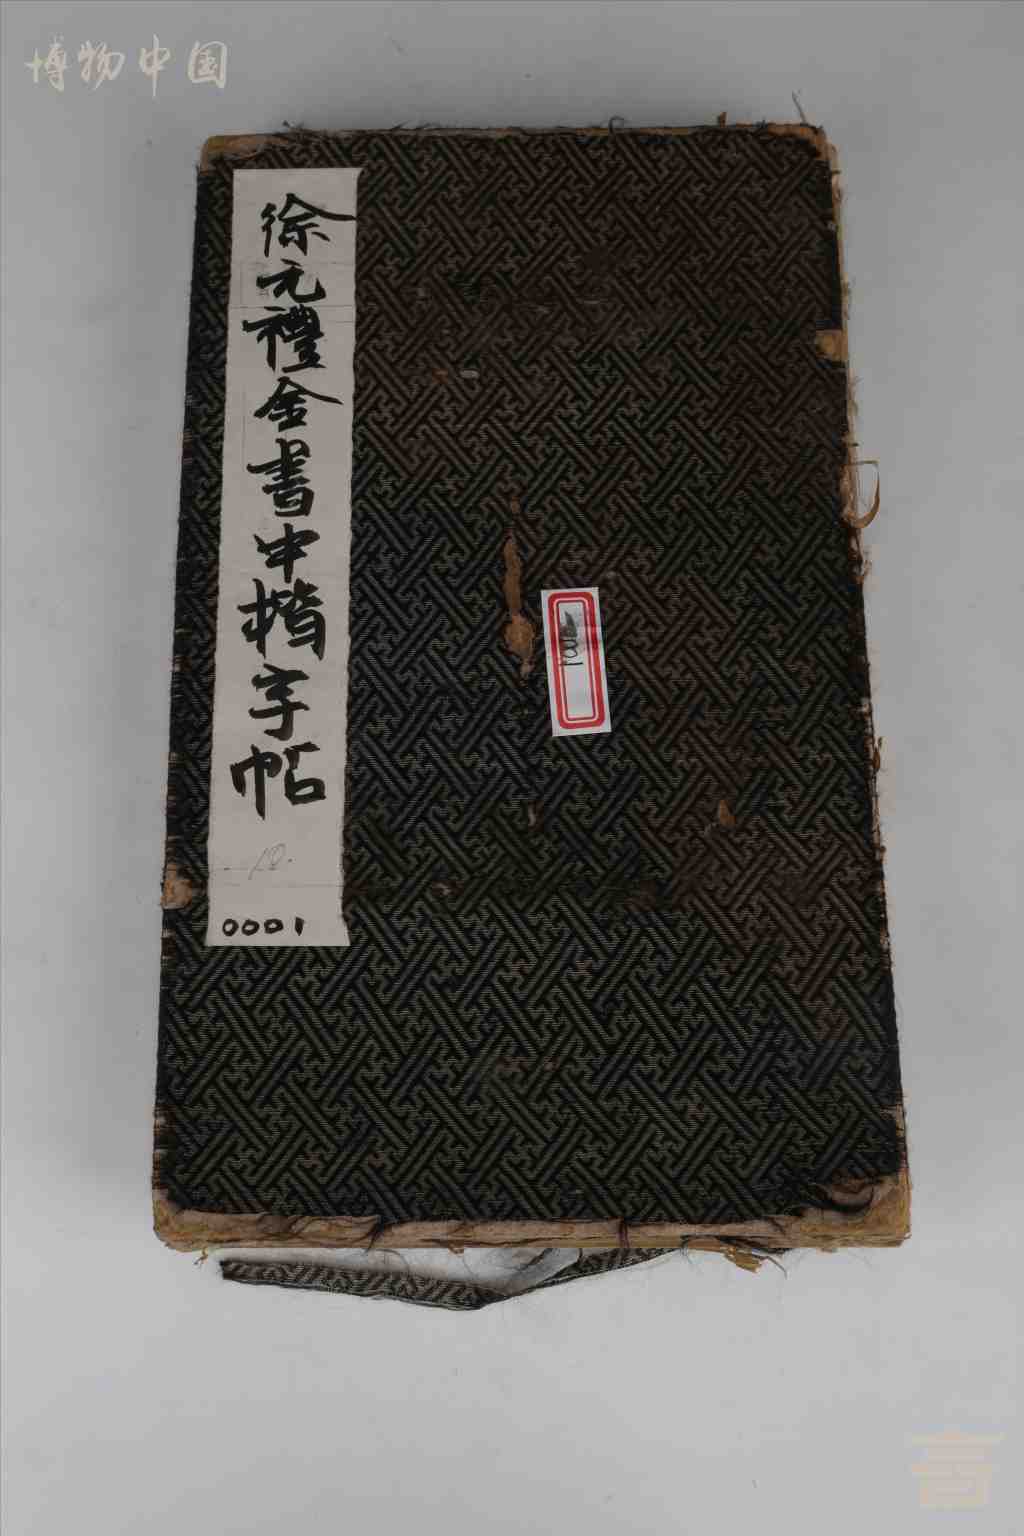 博物中国
徐元禮金書中楷字帖
18.
0001